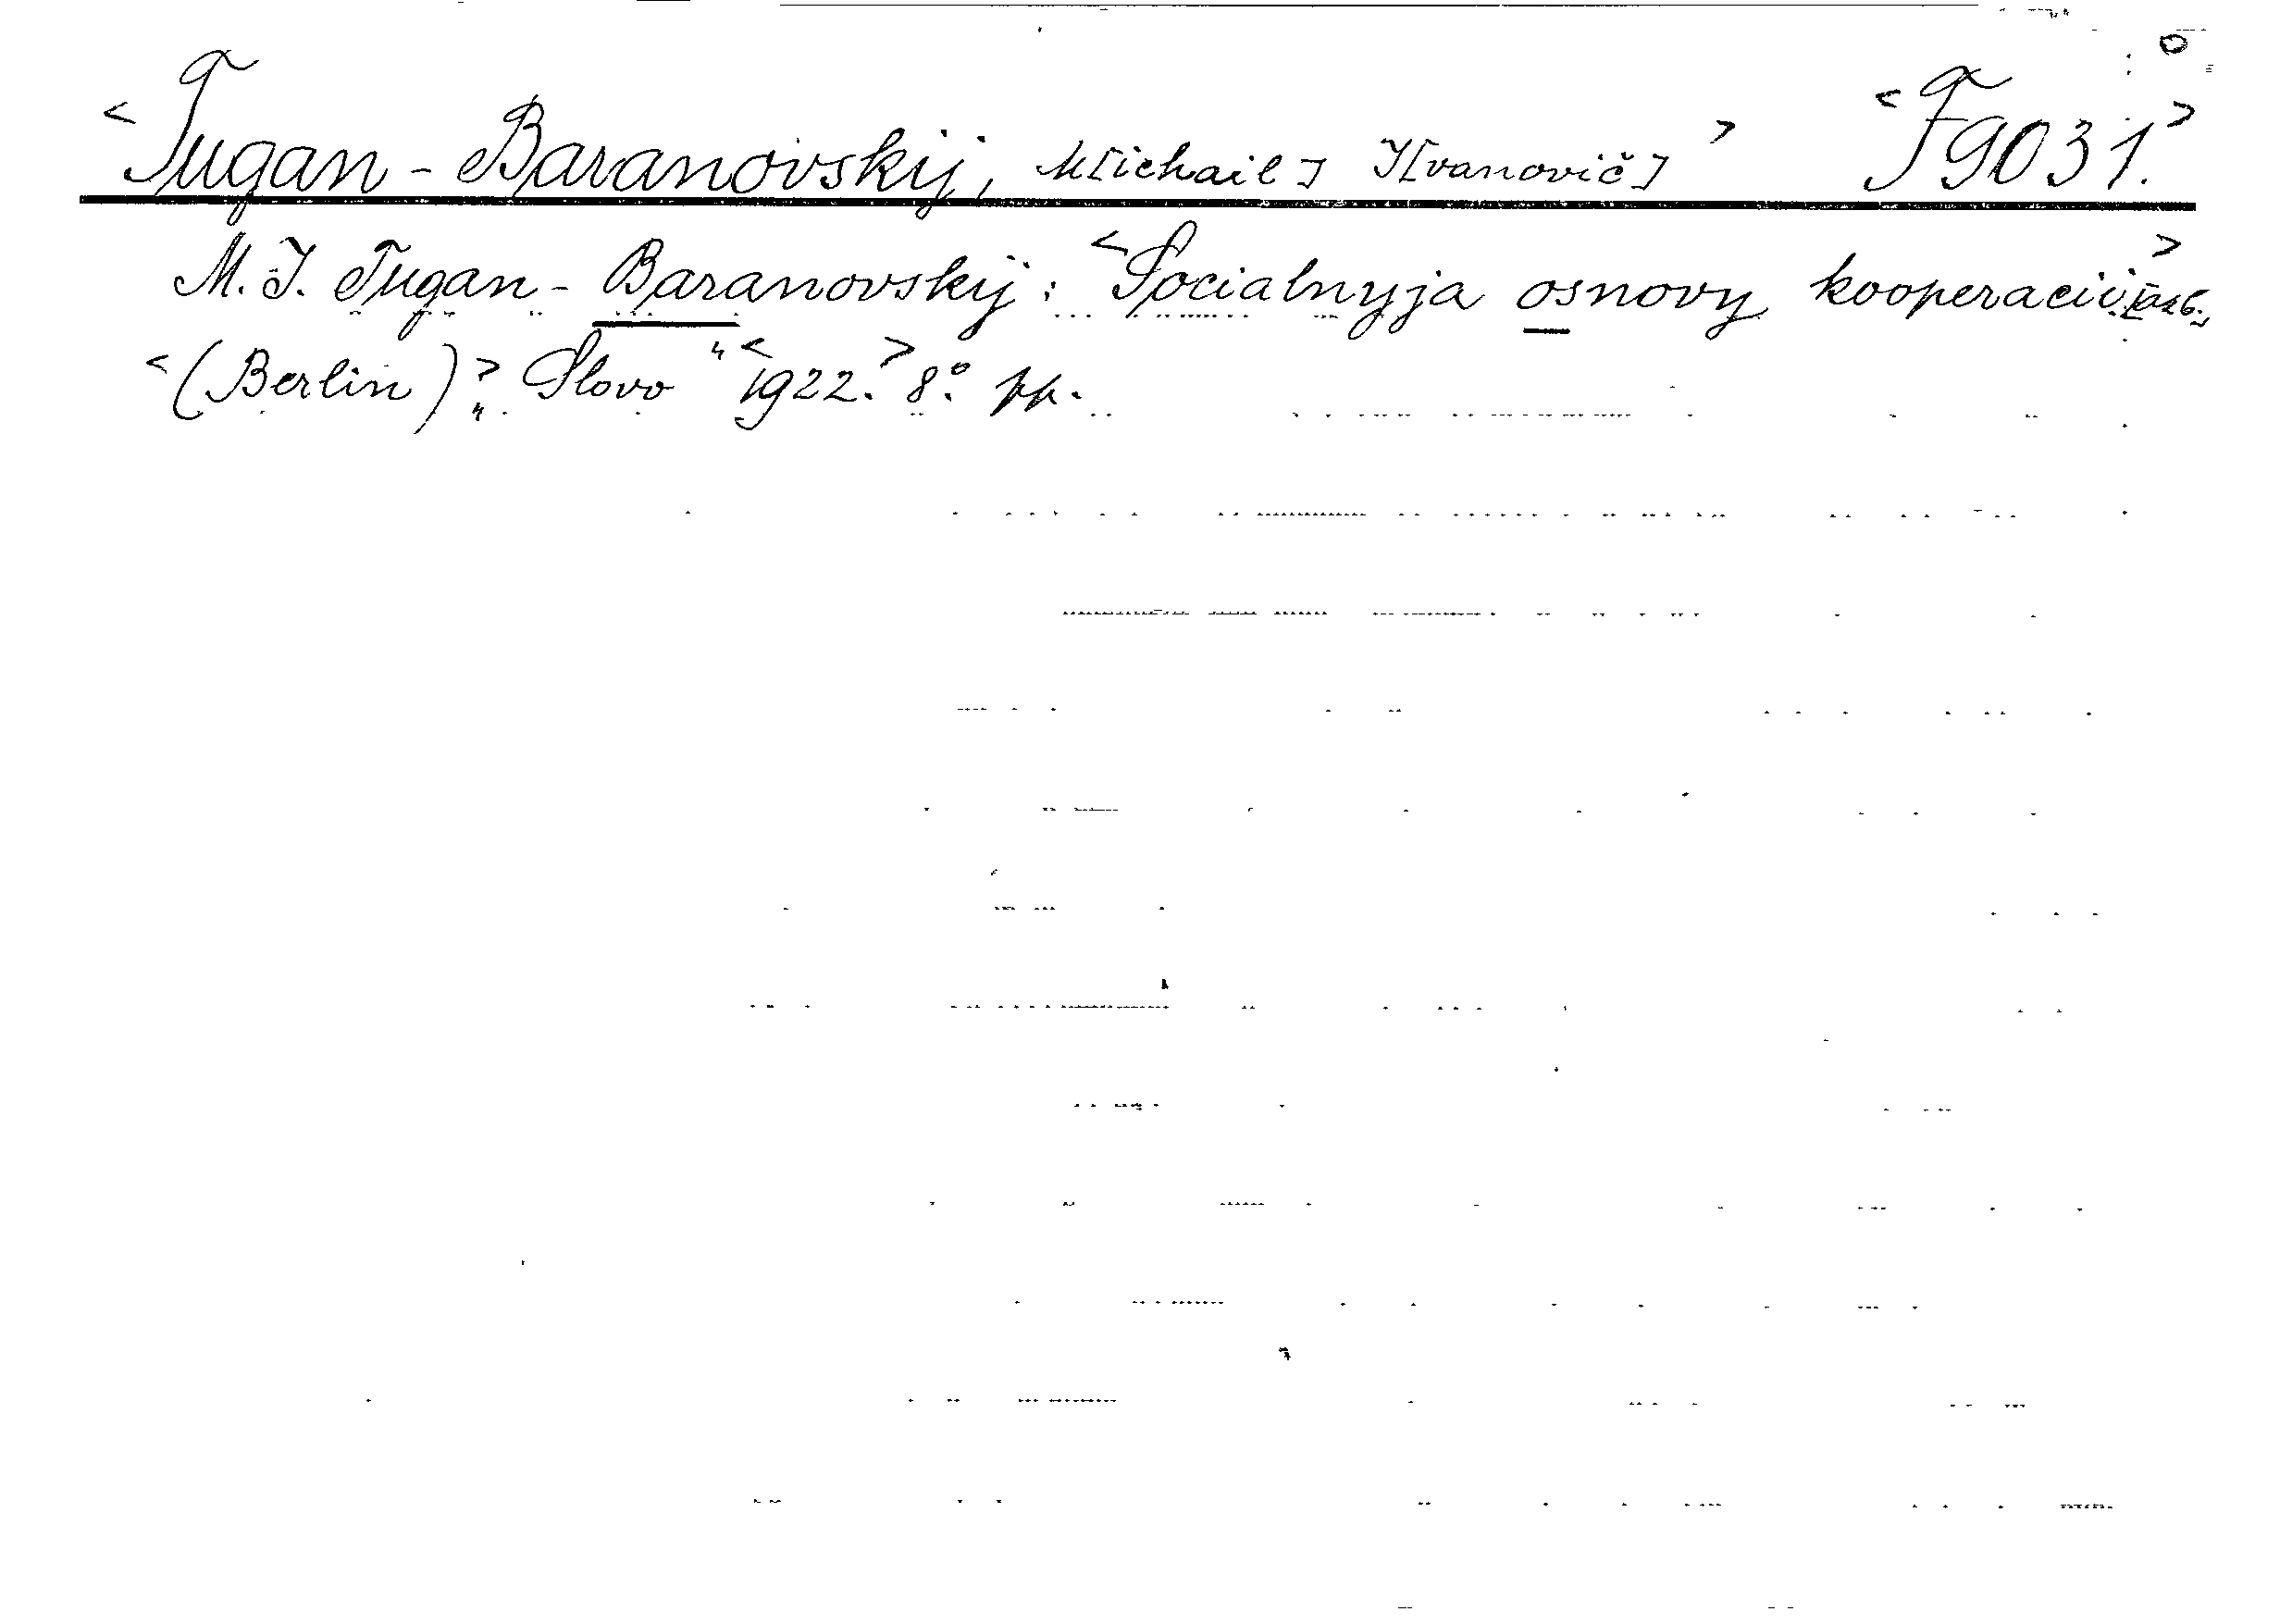 <Tugan-Baranovskij, M[ichail] I[vanovič]> <F9031.>
M. I. Tugan-Baranovskij: <Socialnyja osnovy kooperacii.>
<(Berlin)> „Slovo“ <1922.> 8° pp.